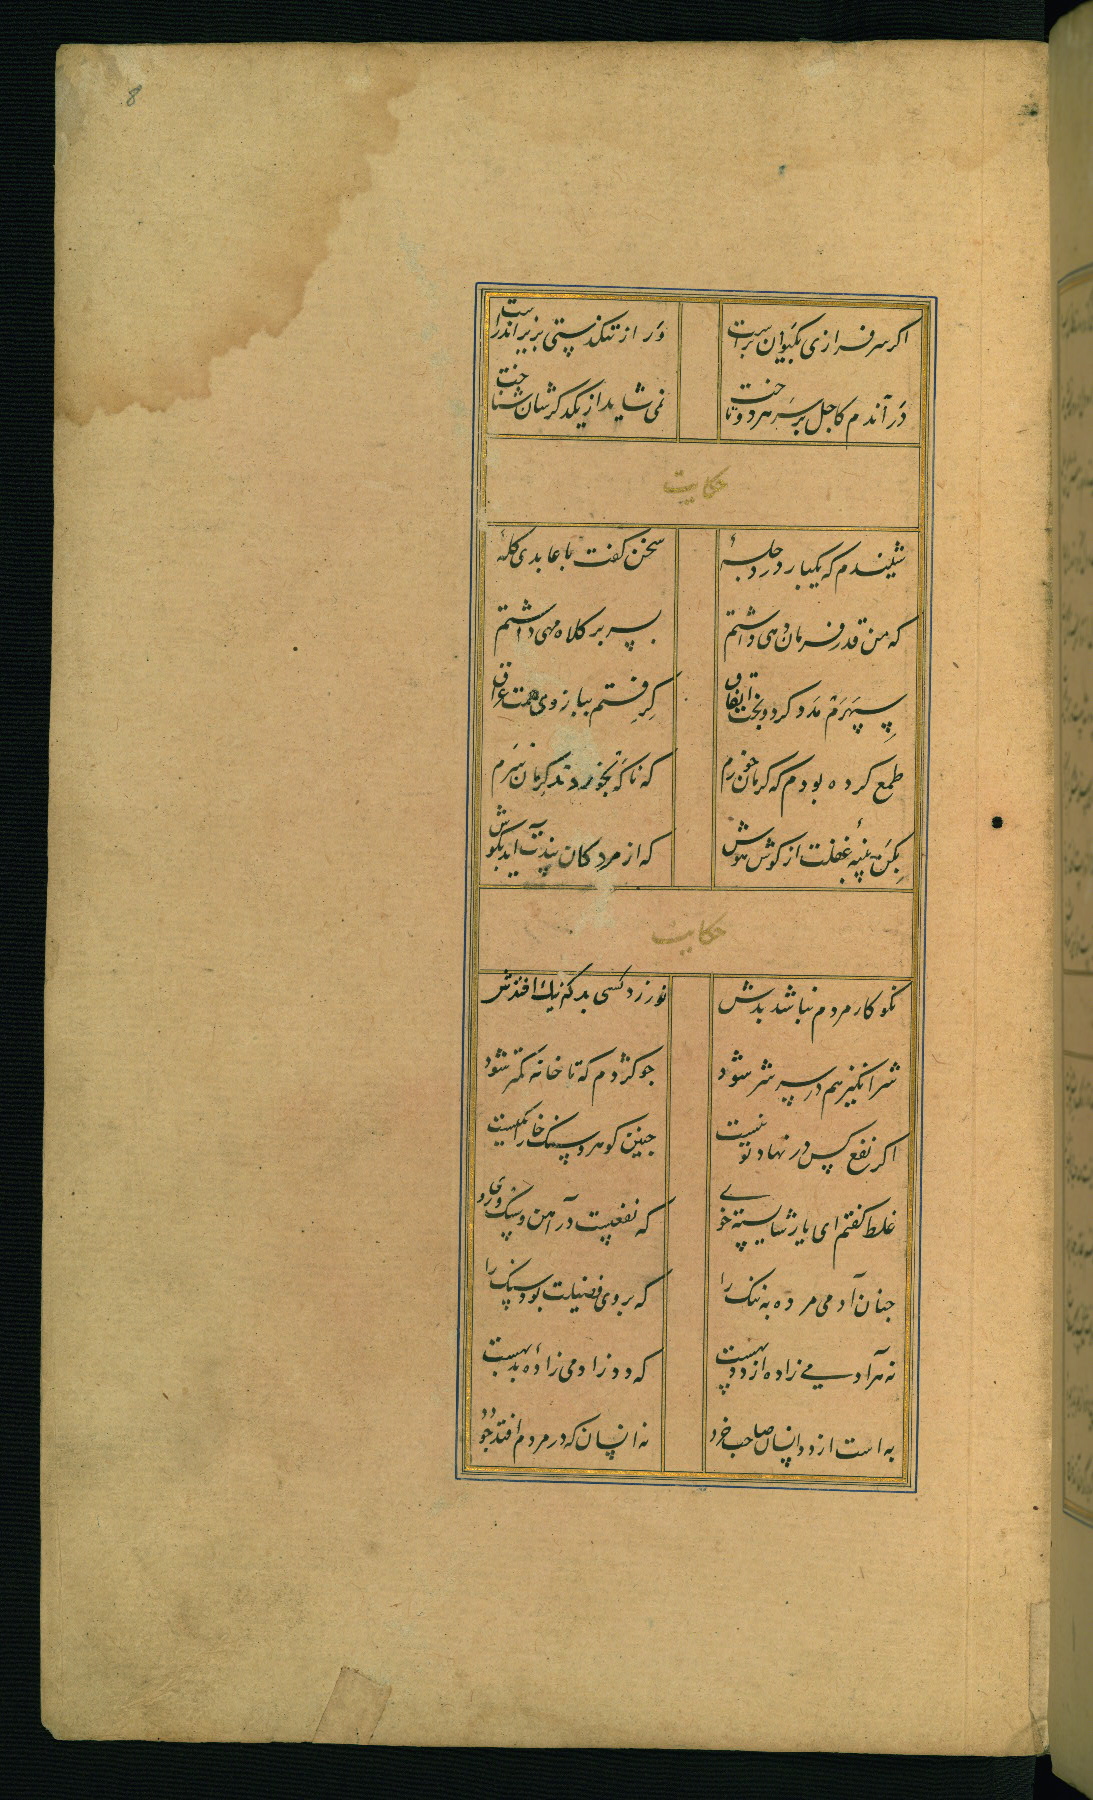 8
اگر سرفرازی بکیوان برست ور از تنکدستی بزیر اندرست
در آندم کاجل بر سر هر دو تاخت نمی شاید از یکدگرشان شناخت
حکایت
شنیدم که یکبار در دجلهٔ سخن گفت با عابدی کلهٔ
که من قدر فرمان دهی داشتم بسر بر کلاه مهی داشتم
سپهرم مدد کرد و بخت اتفاق گرفتم ببازوی همت عراق
طمع کرده بودم که کرمان خورم که ناگه بخوردند کرمان سرم
بکن پنبهٔ غفلت از گوش هوش که از مردکان پندت آید بگوش
حکایت
نکوکار مردم نباشد بدش نورزد کسی بد که نیک افتدش
شرانگیز هم در سر شر شود جو کژدم که تا خانه کمتر شود
اگر نفع کس در نهاد تو نیست جنین گوهر و سنک خارا یکیست
غلط گفتم ای یار شایسته خوی که نفعیست در آهن و سنک و روی
جنان آدمی مرده به ننک را که بر وی فضیلت بود سنک را
نه هر آدمی زاده از دد بهست که دد ز آدمی زادهٔ بد بهست
به است از دد انسان صاحب خرد نه انسان که در مردم افتد جو دد